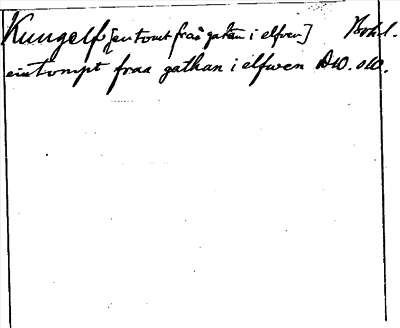 Kungelf [en tomt från gatan i elfven] Bohl.
ein tompt fraa gathan i elfwen DW. o W.